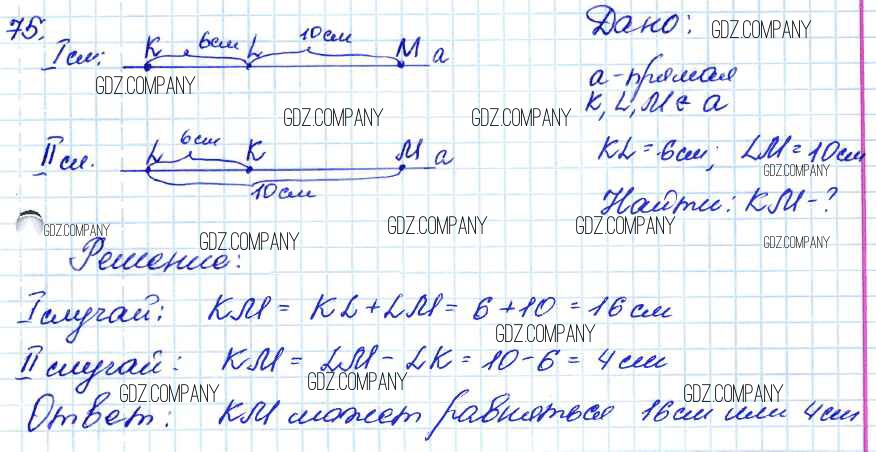 75.
I сл: K 6см L 10см M a
GDZ.COMPANY
II сл. L 6см K M a
10см
Дано: GDZ.COMPANY
a - прямая
K, L, M ∈ a
GDZ.COMPANY GDZ.COMPANY
KL = 6см; LM = 10см
GDZ.COMPANY
Найти: KM - ?
GDZ.COMPANY GDZ.COMPANY GDZ.COMPANY GDZ.COMPANY GDZ.COMPANY
Решение:
I случай: KM = KL + LM = 6 + 10 = 16 см
GDZ.COMPANY
II случай: KM = LM - LK = 10 - 6 = 4 см
GDZ.COMPANY GDZ.COMPANY GDZ.COMPANY
Ответ: KM может равняться 16 см или 4 см